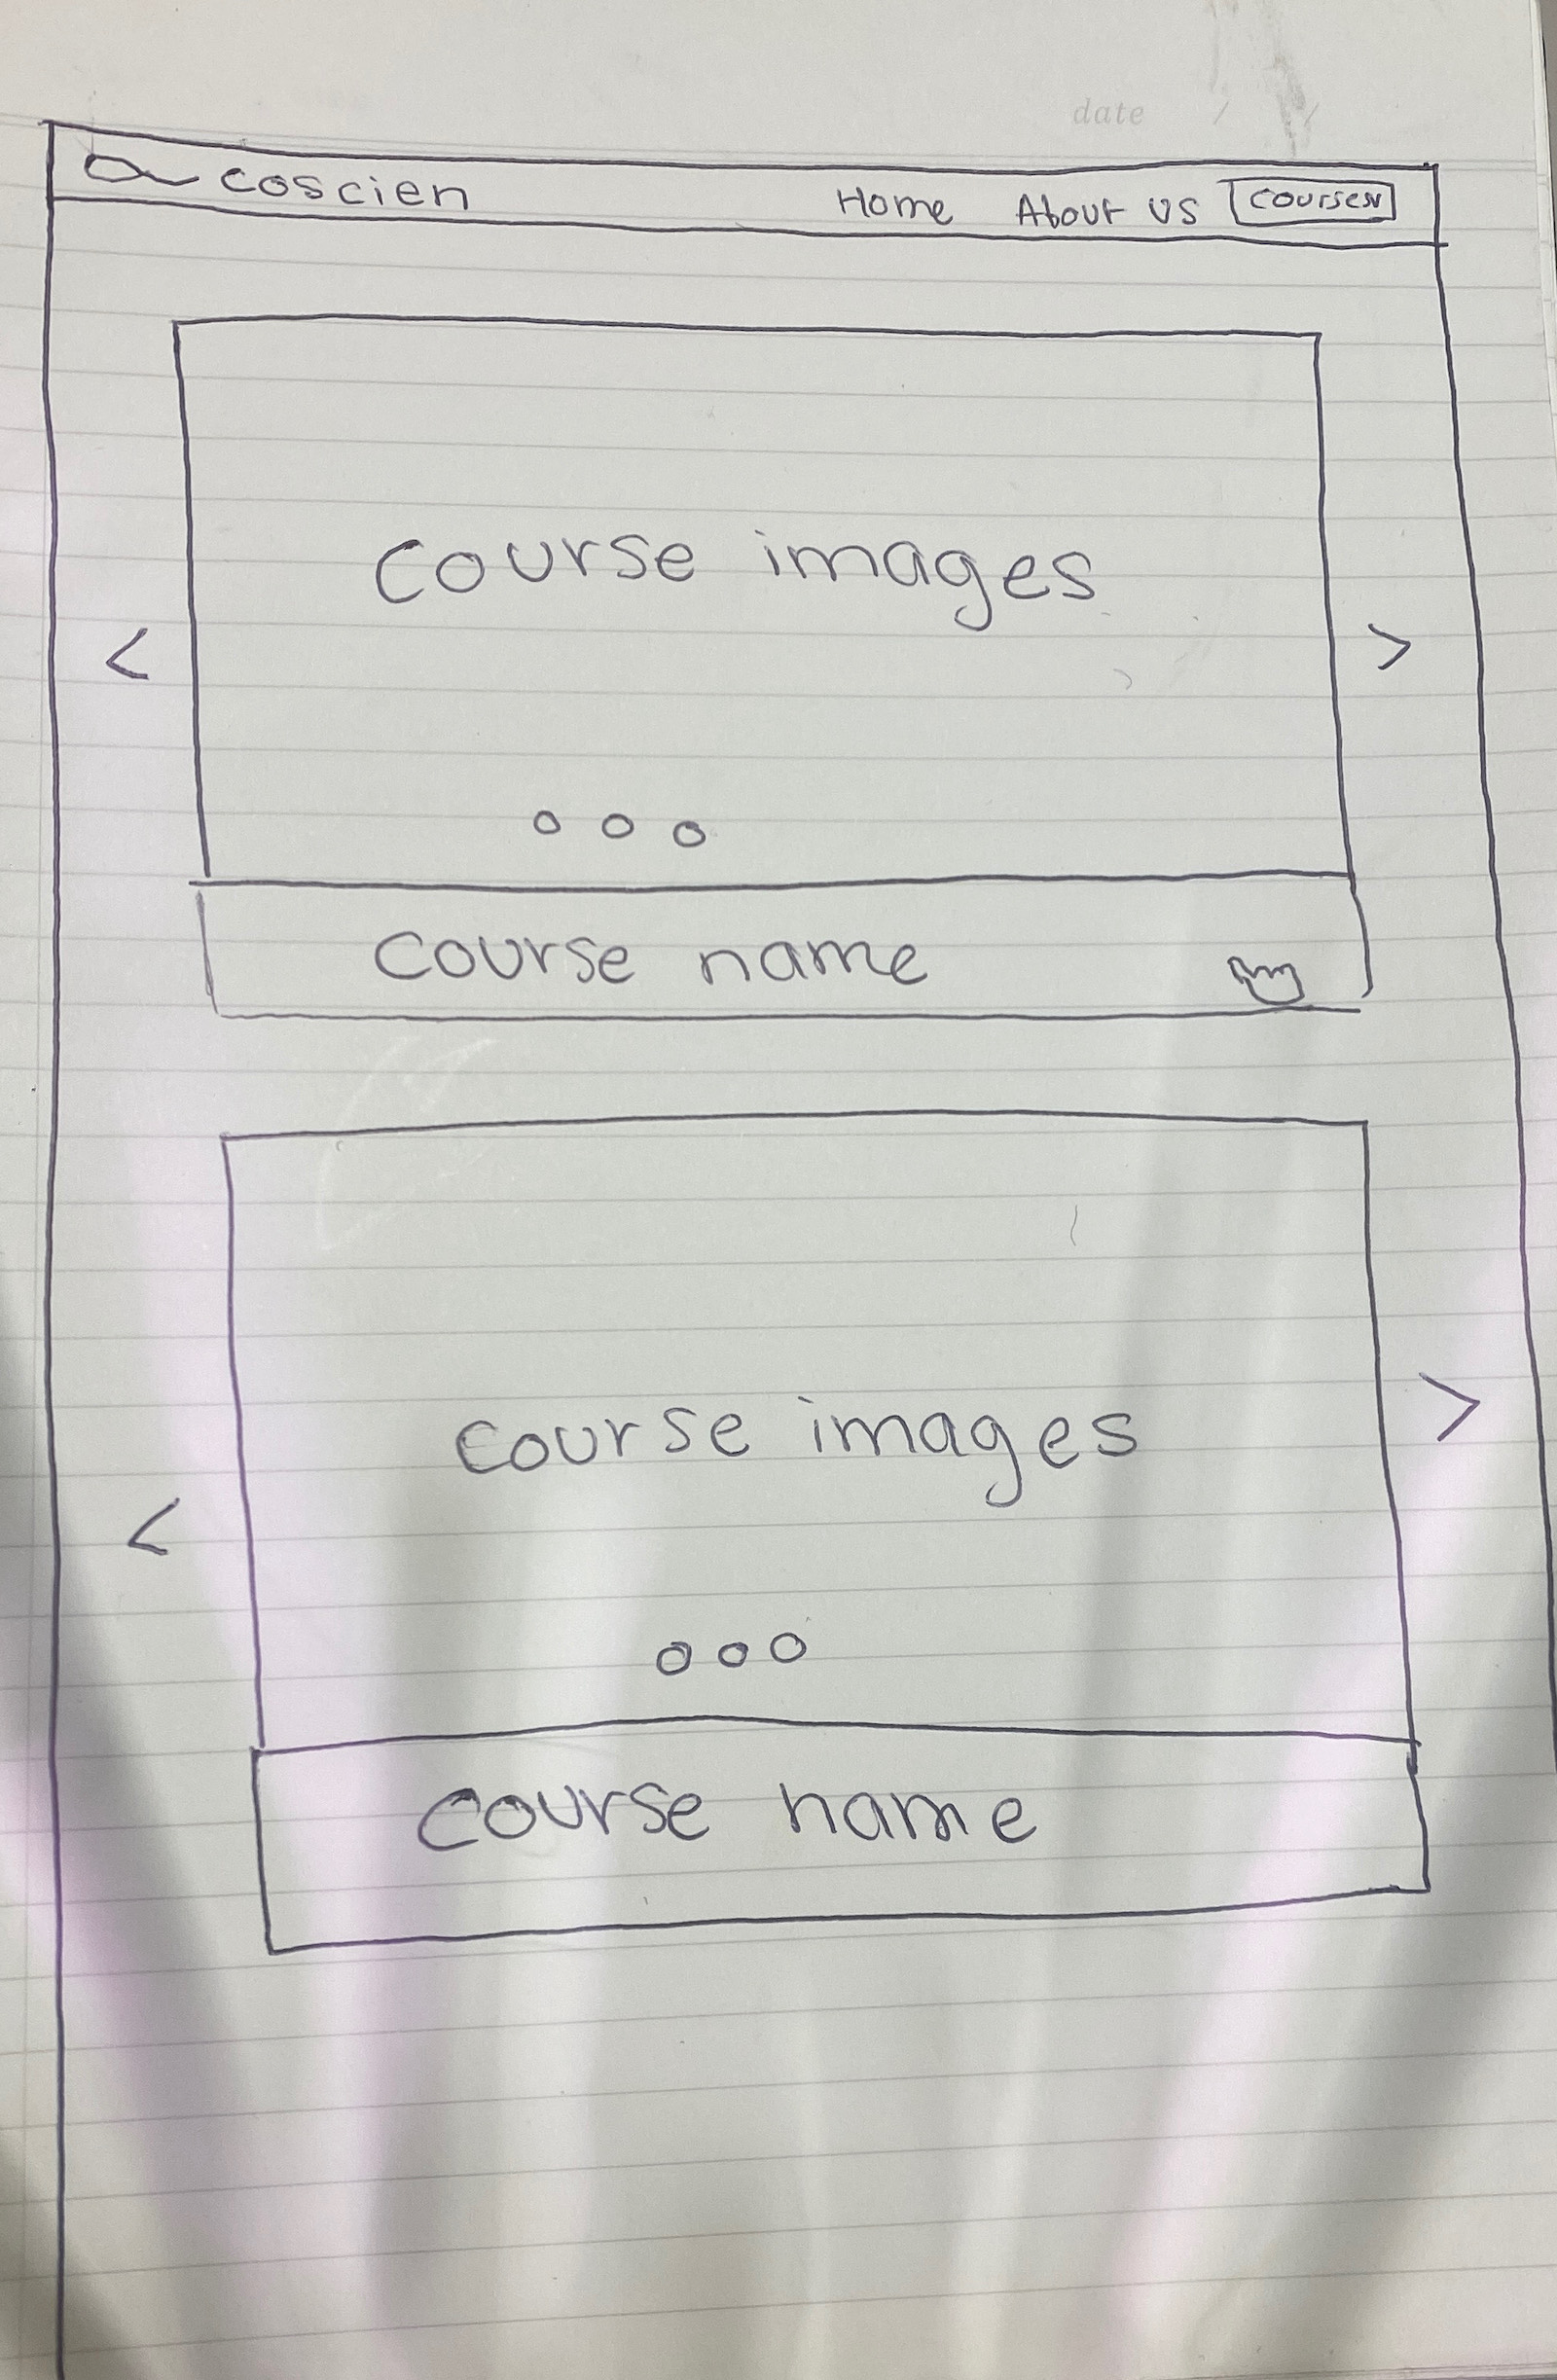 date / /
coscien Home About us courses
course images
< >
course name
course images
>
<
course name